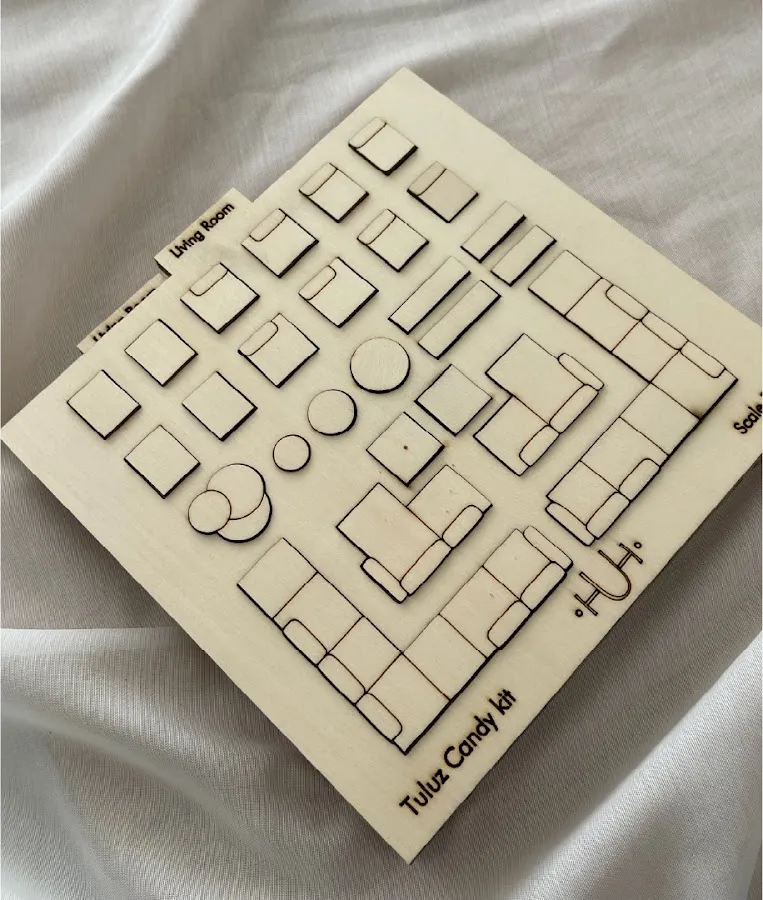 Living Room
Living Room
Scale
HUH
Tuluz Candy kit